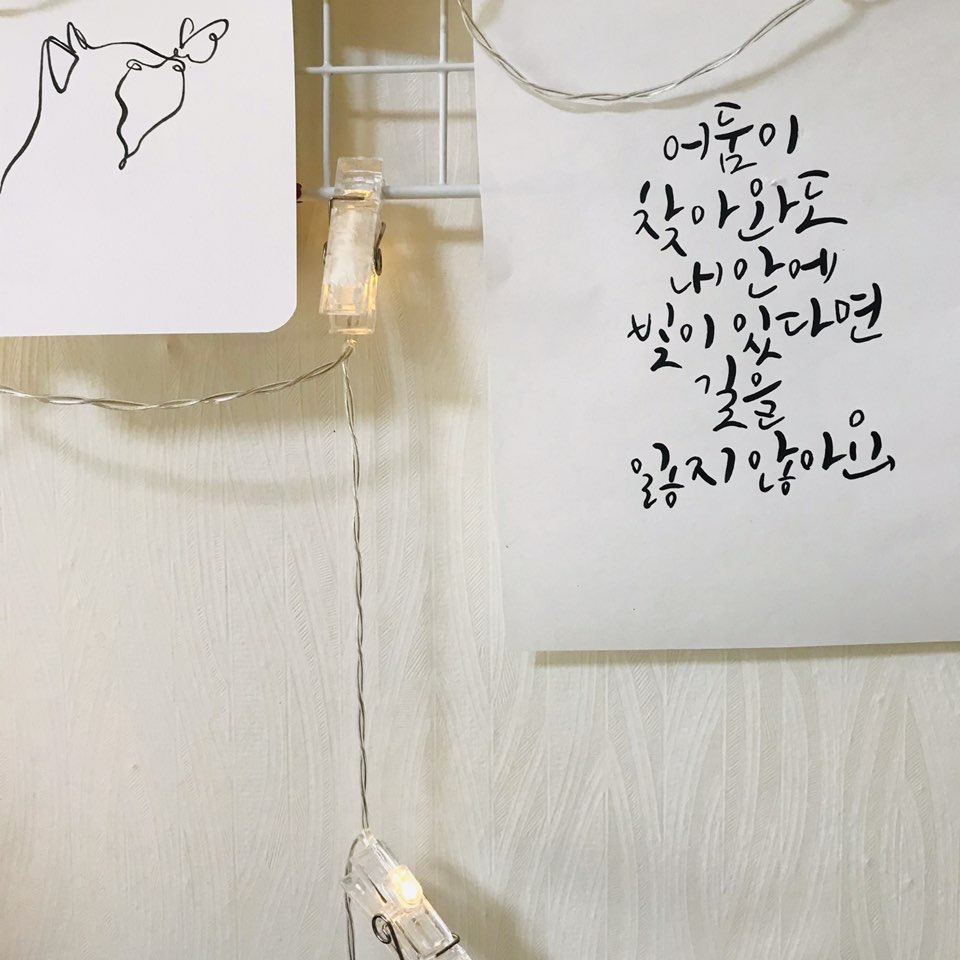 어둠이
찾아와도
내 안에
빛이 있다면
길을
잃지 않아요